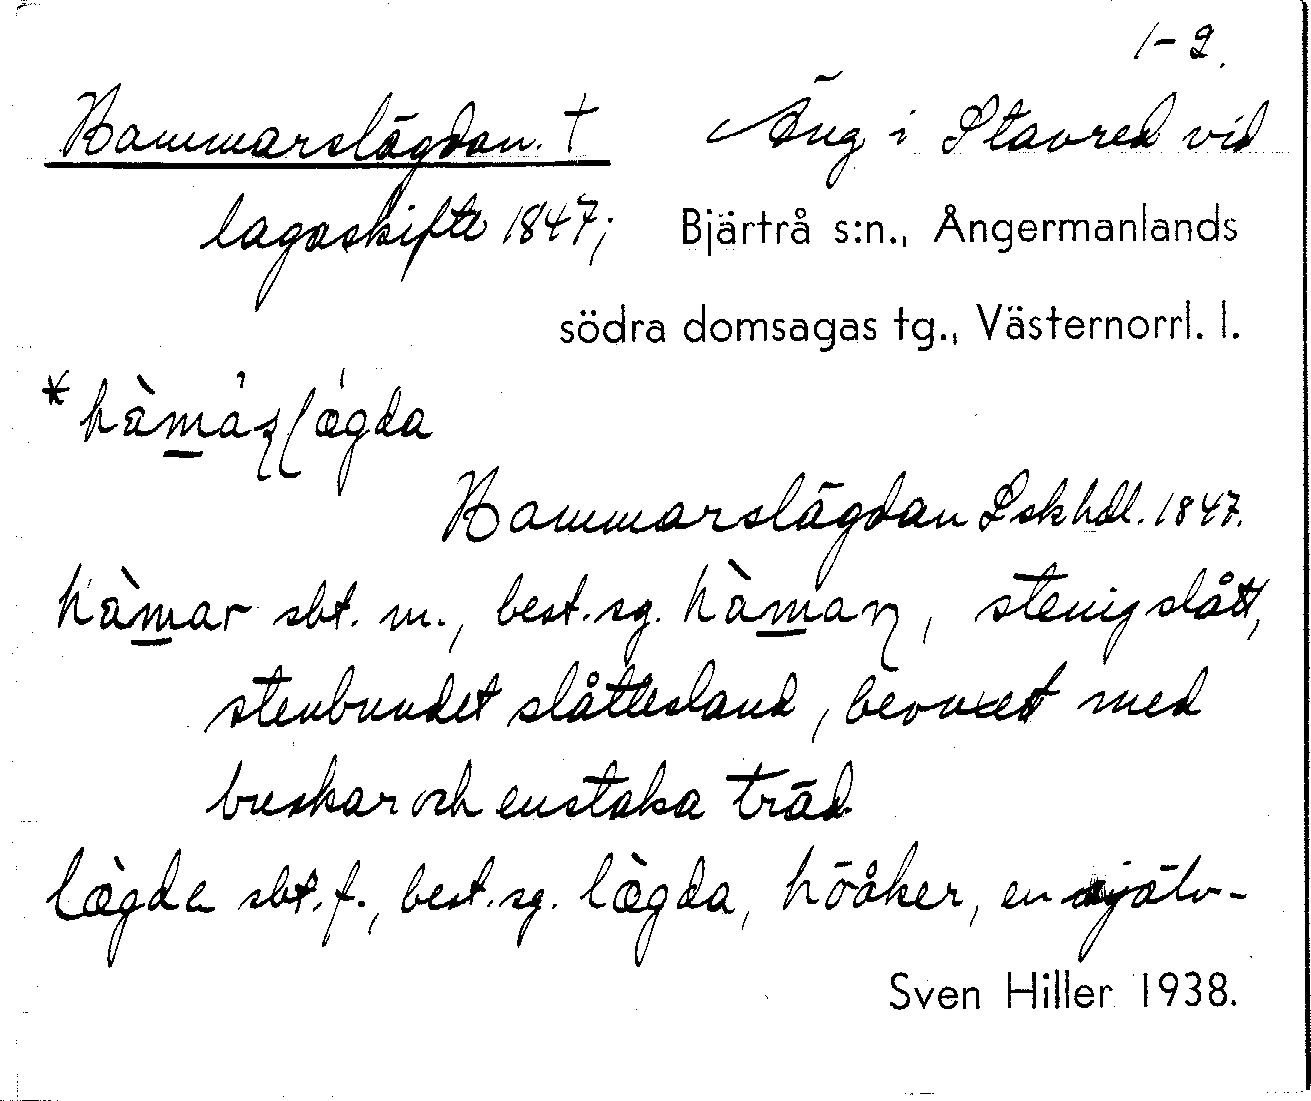 1-2.
Hammarslägdan. † Äng i Stavred vid
lagaskifte 1847; Bjärtrå s:n., Ångermanlands
södra domsagas tg., Västernorrl. l.
* hàmáʀʃlægda
Hammarslägdan Lskhdl. 1847.
hàmar sbt. m., best. sg. hàmaɳ, stenig slått,
stenbundet slåttesland, bevuxet med
buskar och enstaka träd.
lægde sbt. f., best. sg. lægda, höåker, en själv-
Sven Hiller 1938.